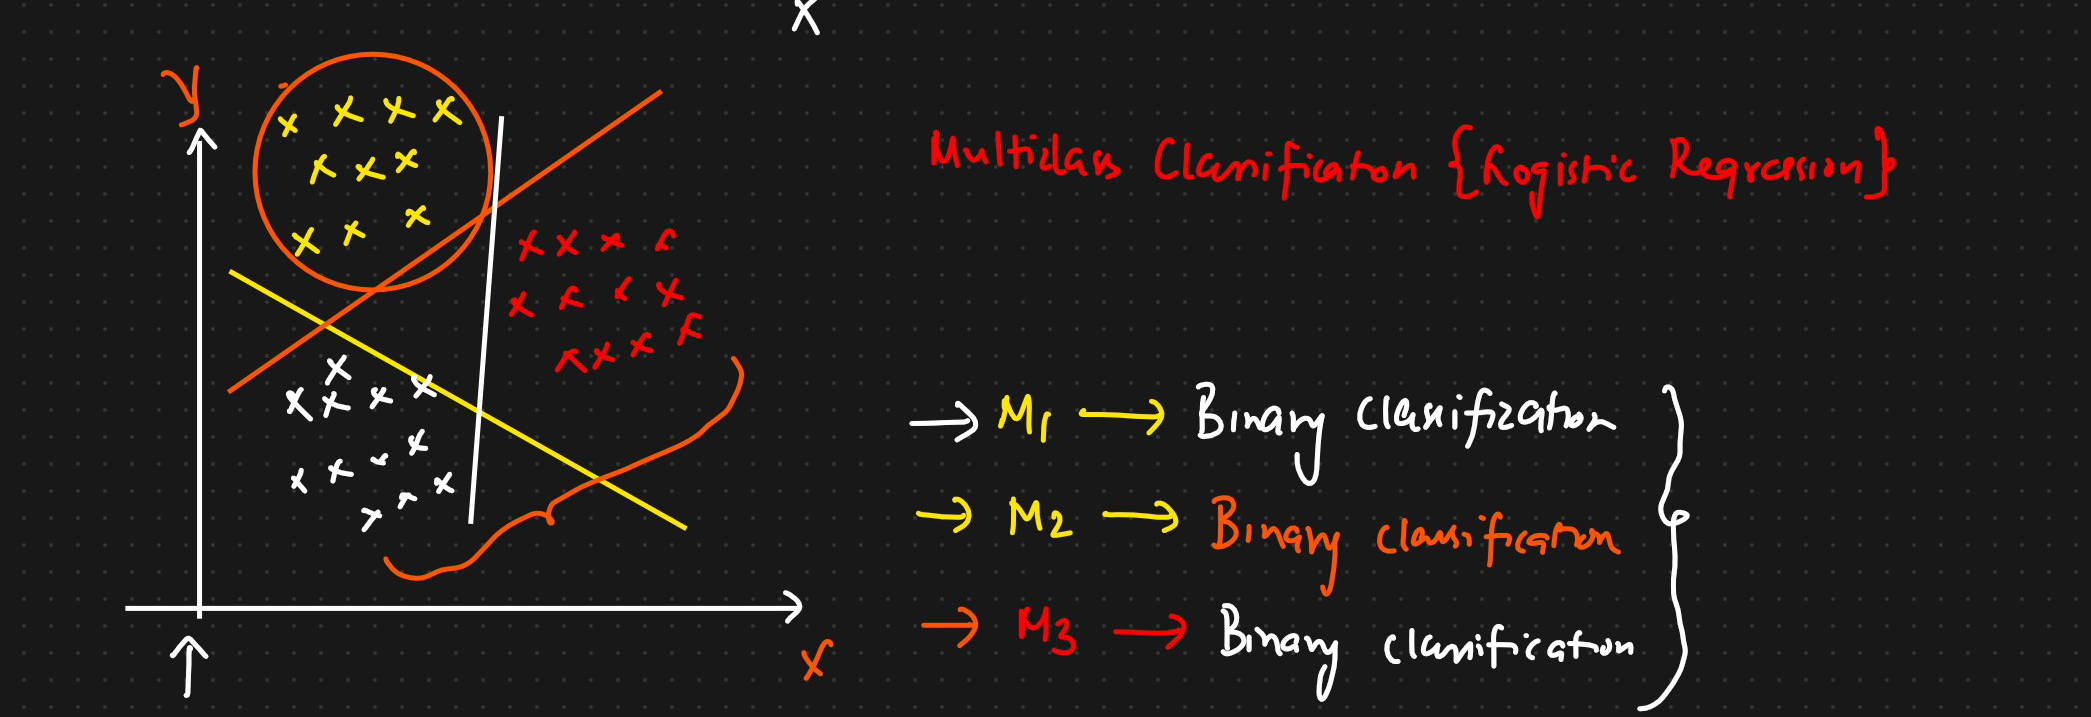 X
y
Multiclass Classification {Logistic Regression}
→ M1 → Binary Classification
→ M2 → Binary classification
→ M3 → Binary classification
X